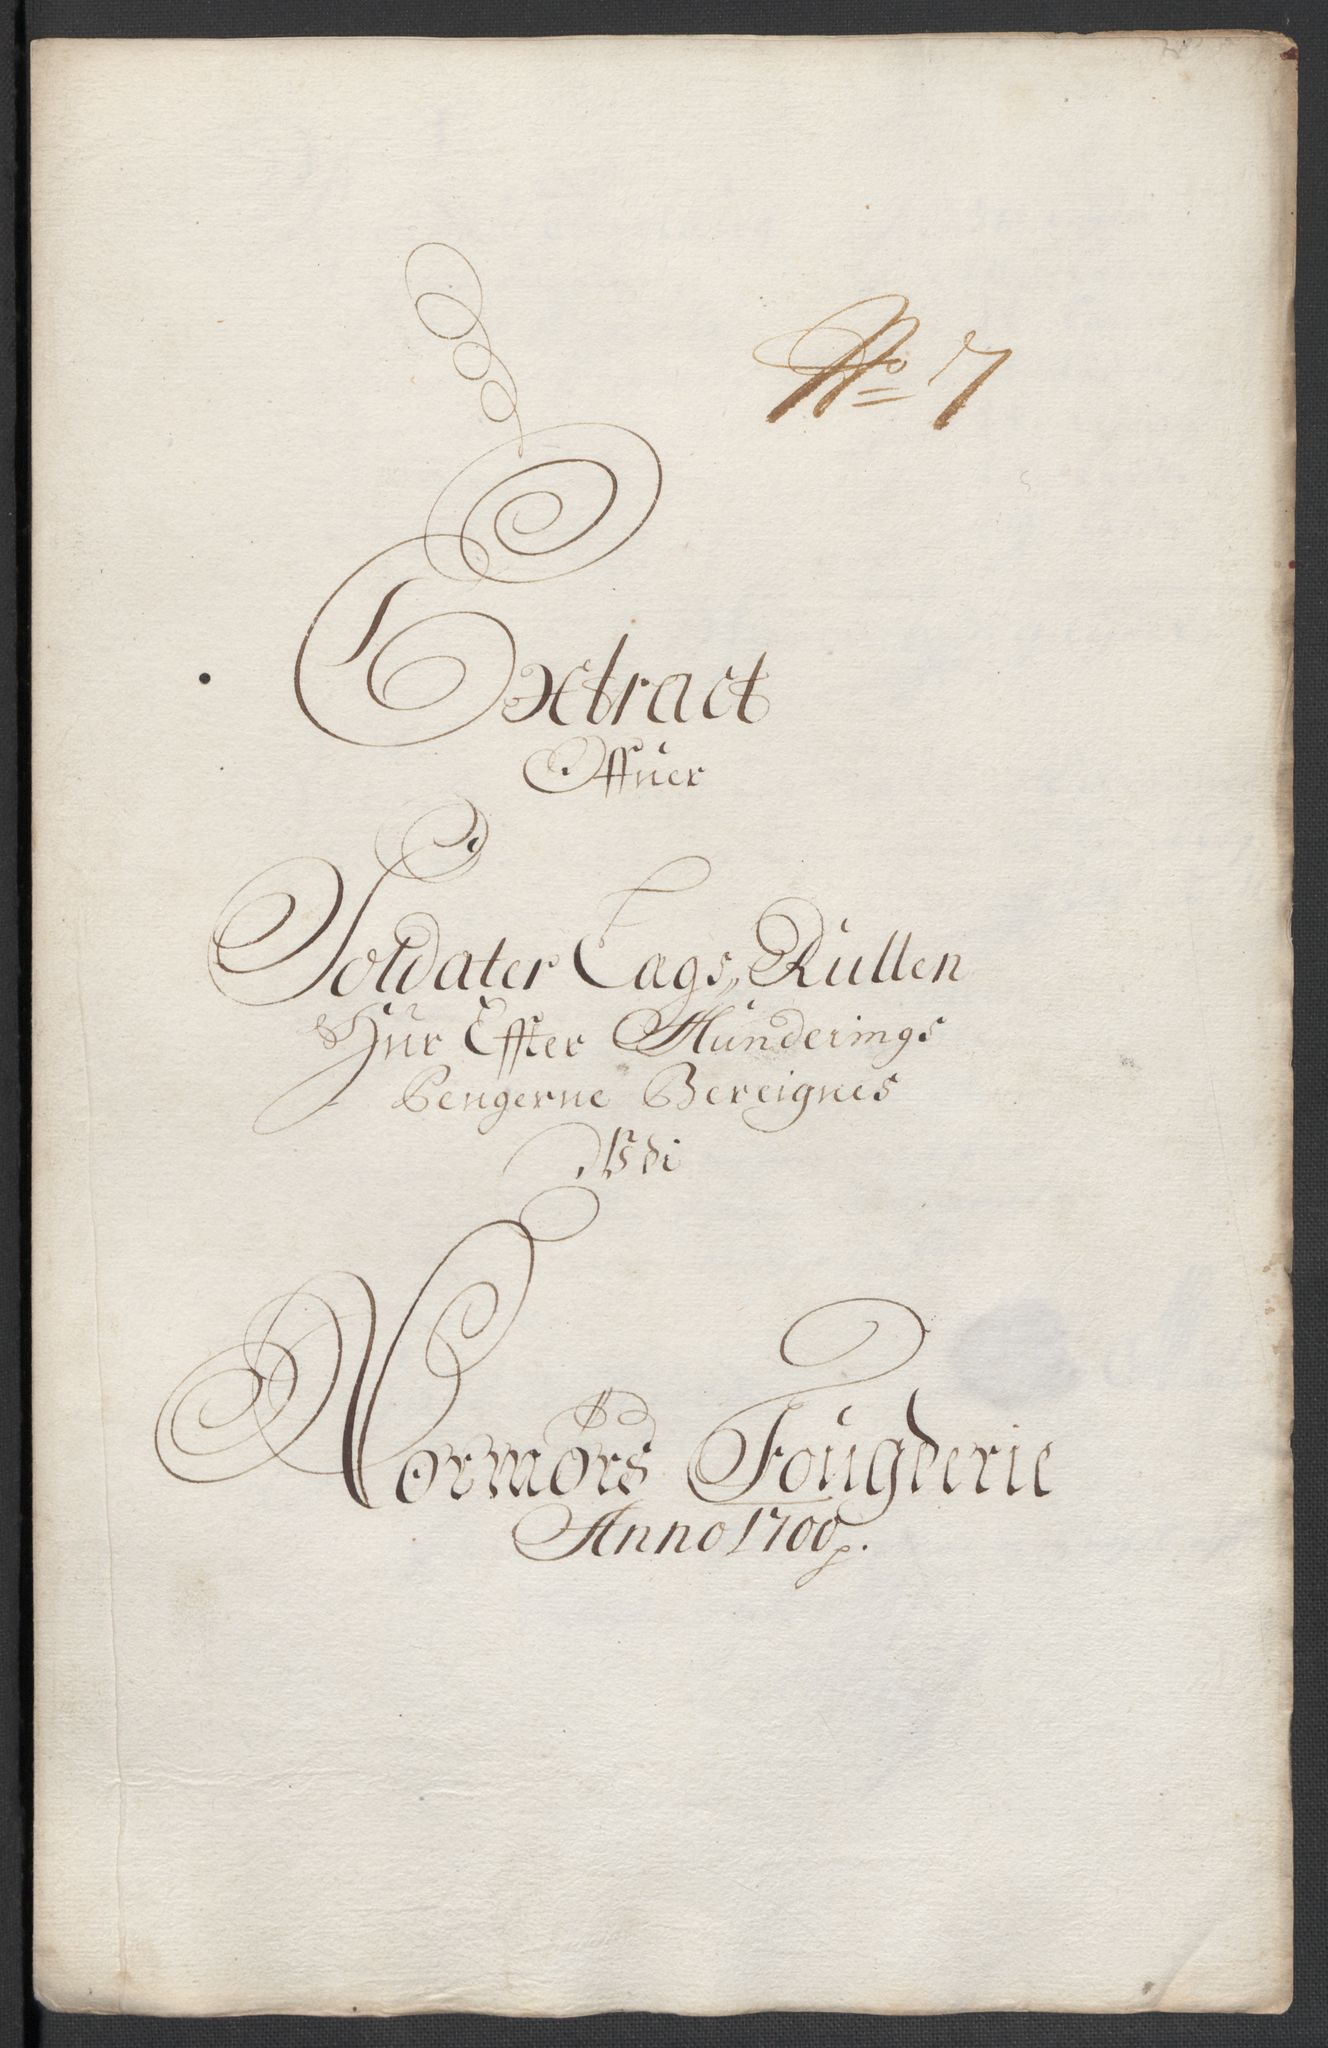 No 7
Extract
Offuer
Soldater Lags Rullen
Hur Effter Munderings
Pengerne Bereignes
Udi
Normørs Fougderie
Anno 1700